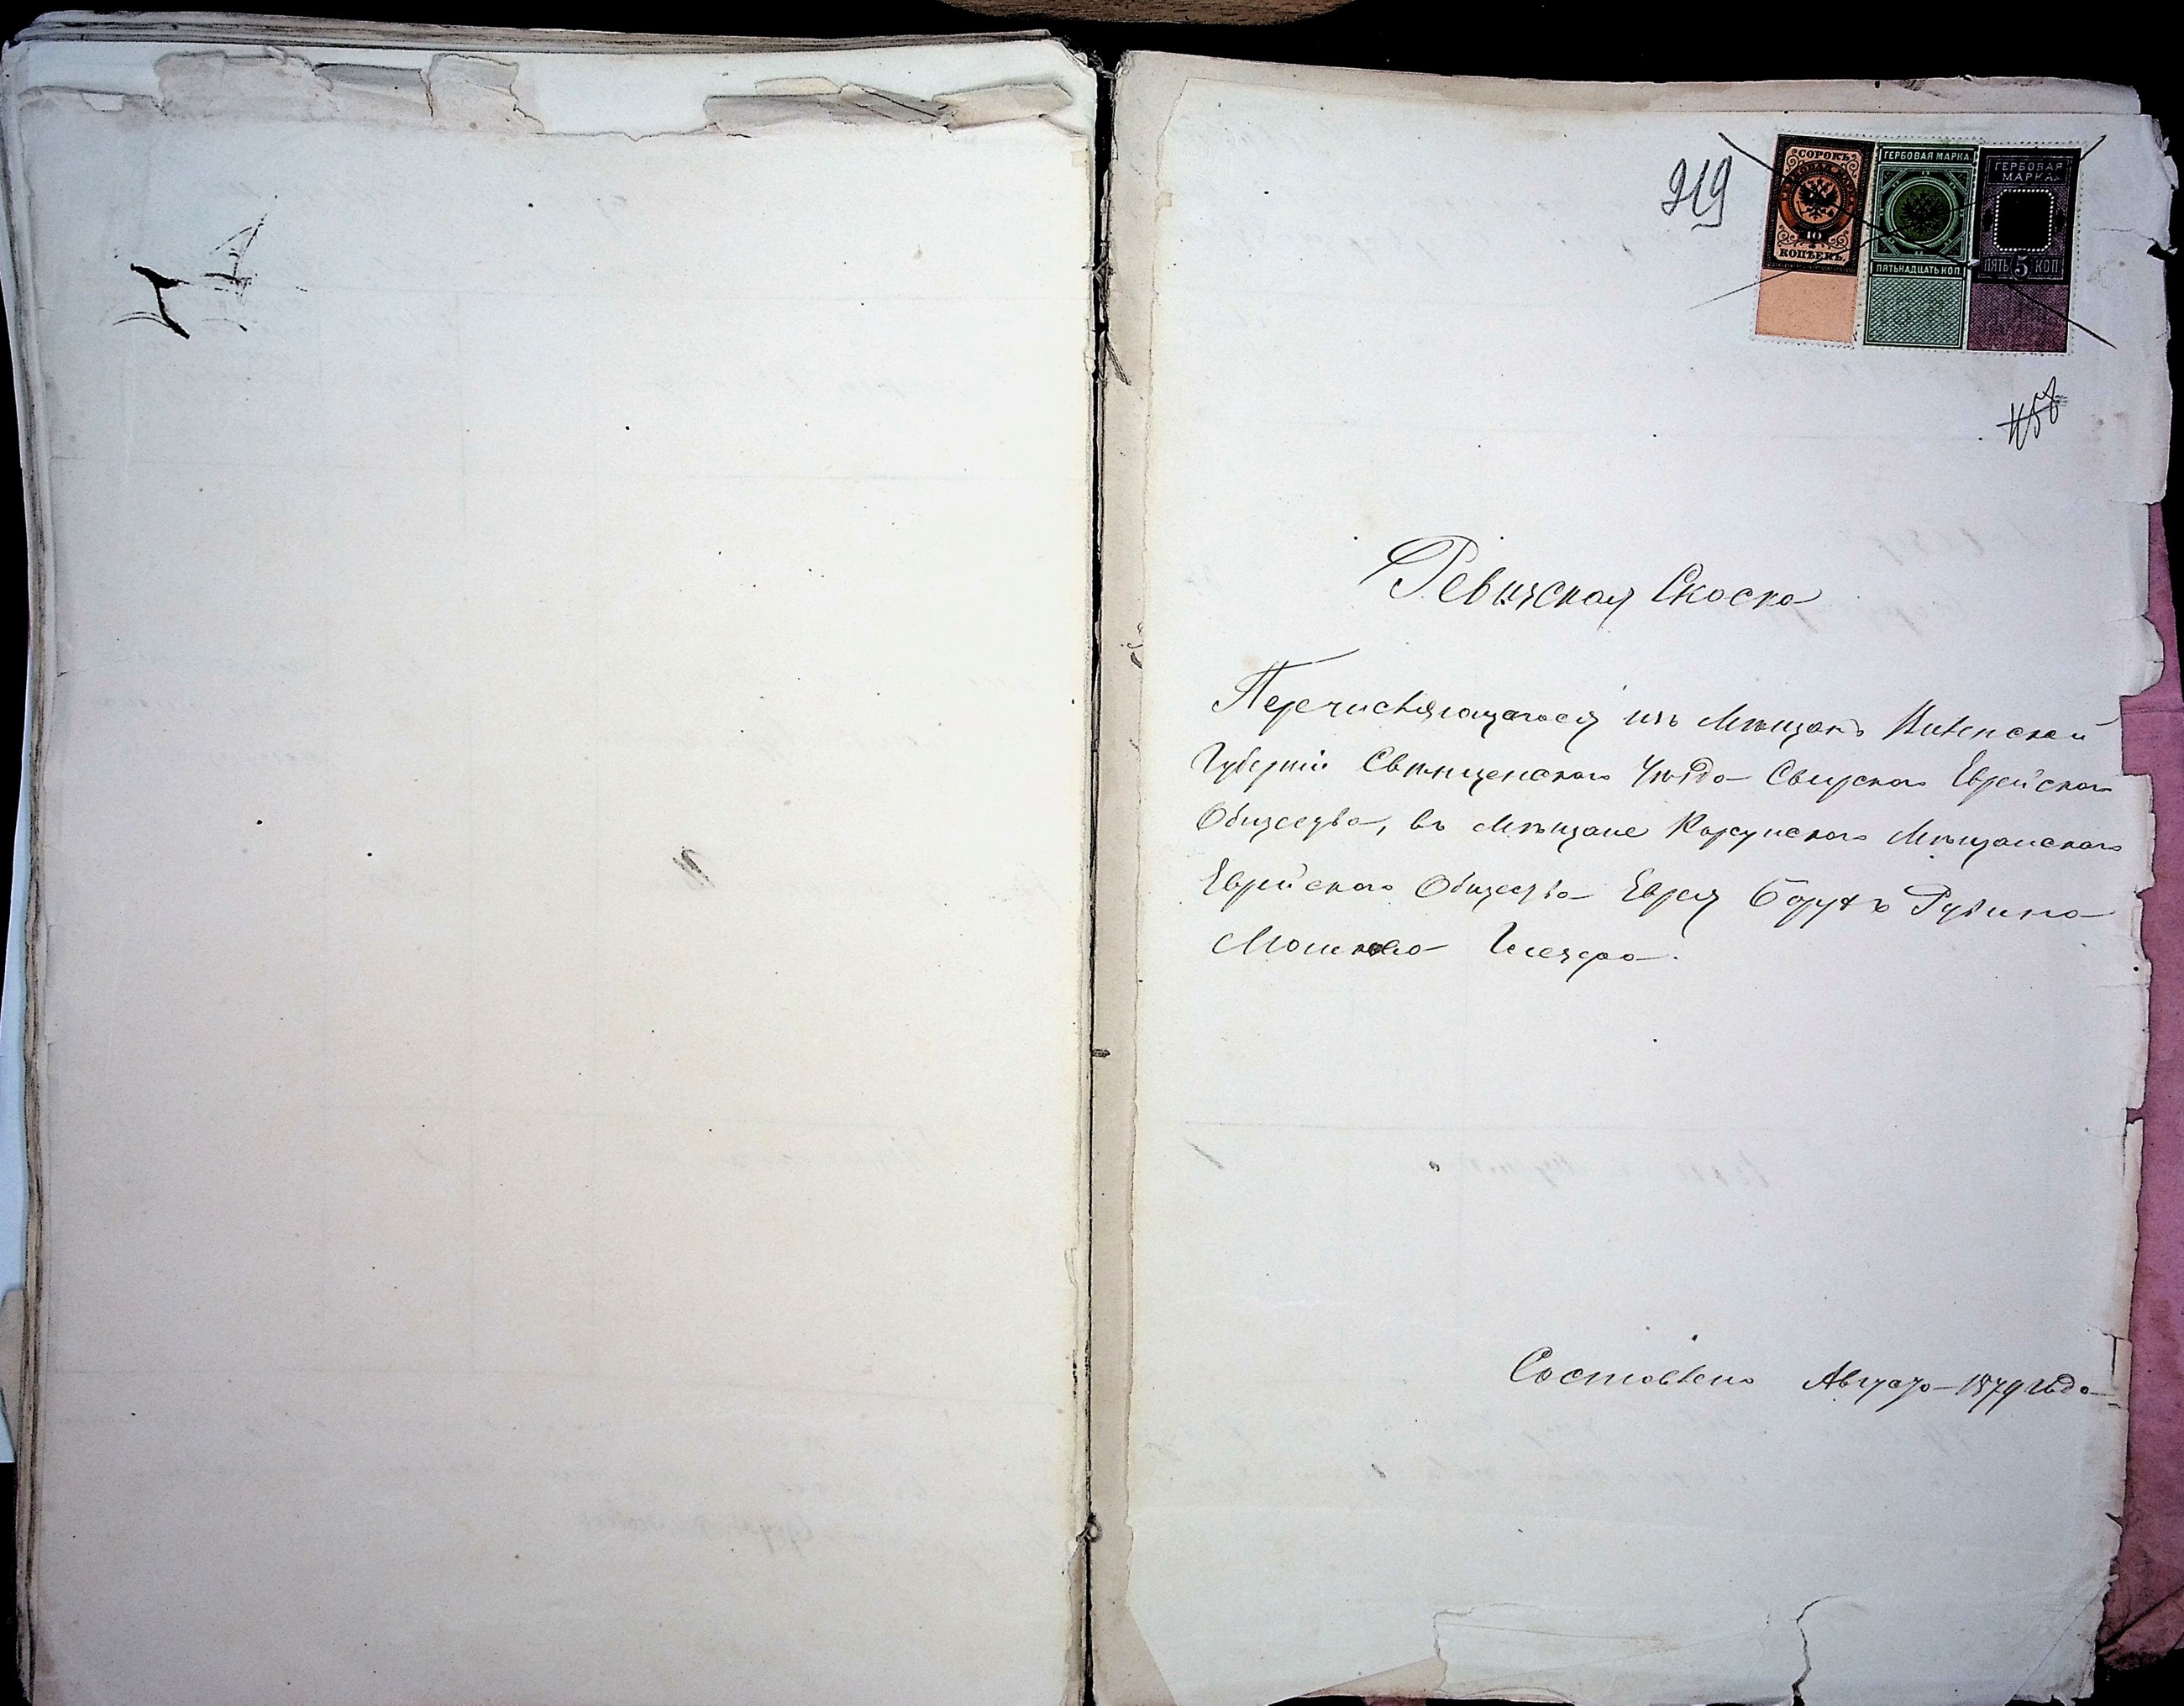 219
СОРОКЪ
ГЕРБОВАЯ МАРКА
40
КОПѢЕКЪ.
ГЕРБОВАЯ МАРКА.
ПЯТЬНАДЦАТЬ КОП.
ГЕРБОВАЯ
МАРКА
ПЯТЬ 5 КОП
458
Ревизская Скаска
Перечисляющагося изъ Мѣщанъ Виленской
Губерніи Свѣнцянскаго Уѣзда Свирскаго Еврейскаго
Общества, въ Мѣщане Корсунскаго Мѣщанскаго
Еврейскаго Общества Еврея Борухъ Рувина
Мошкова
Составлена Августа 1879 года